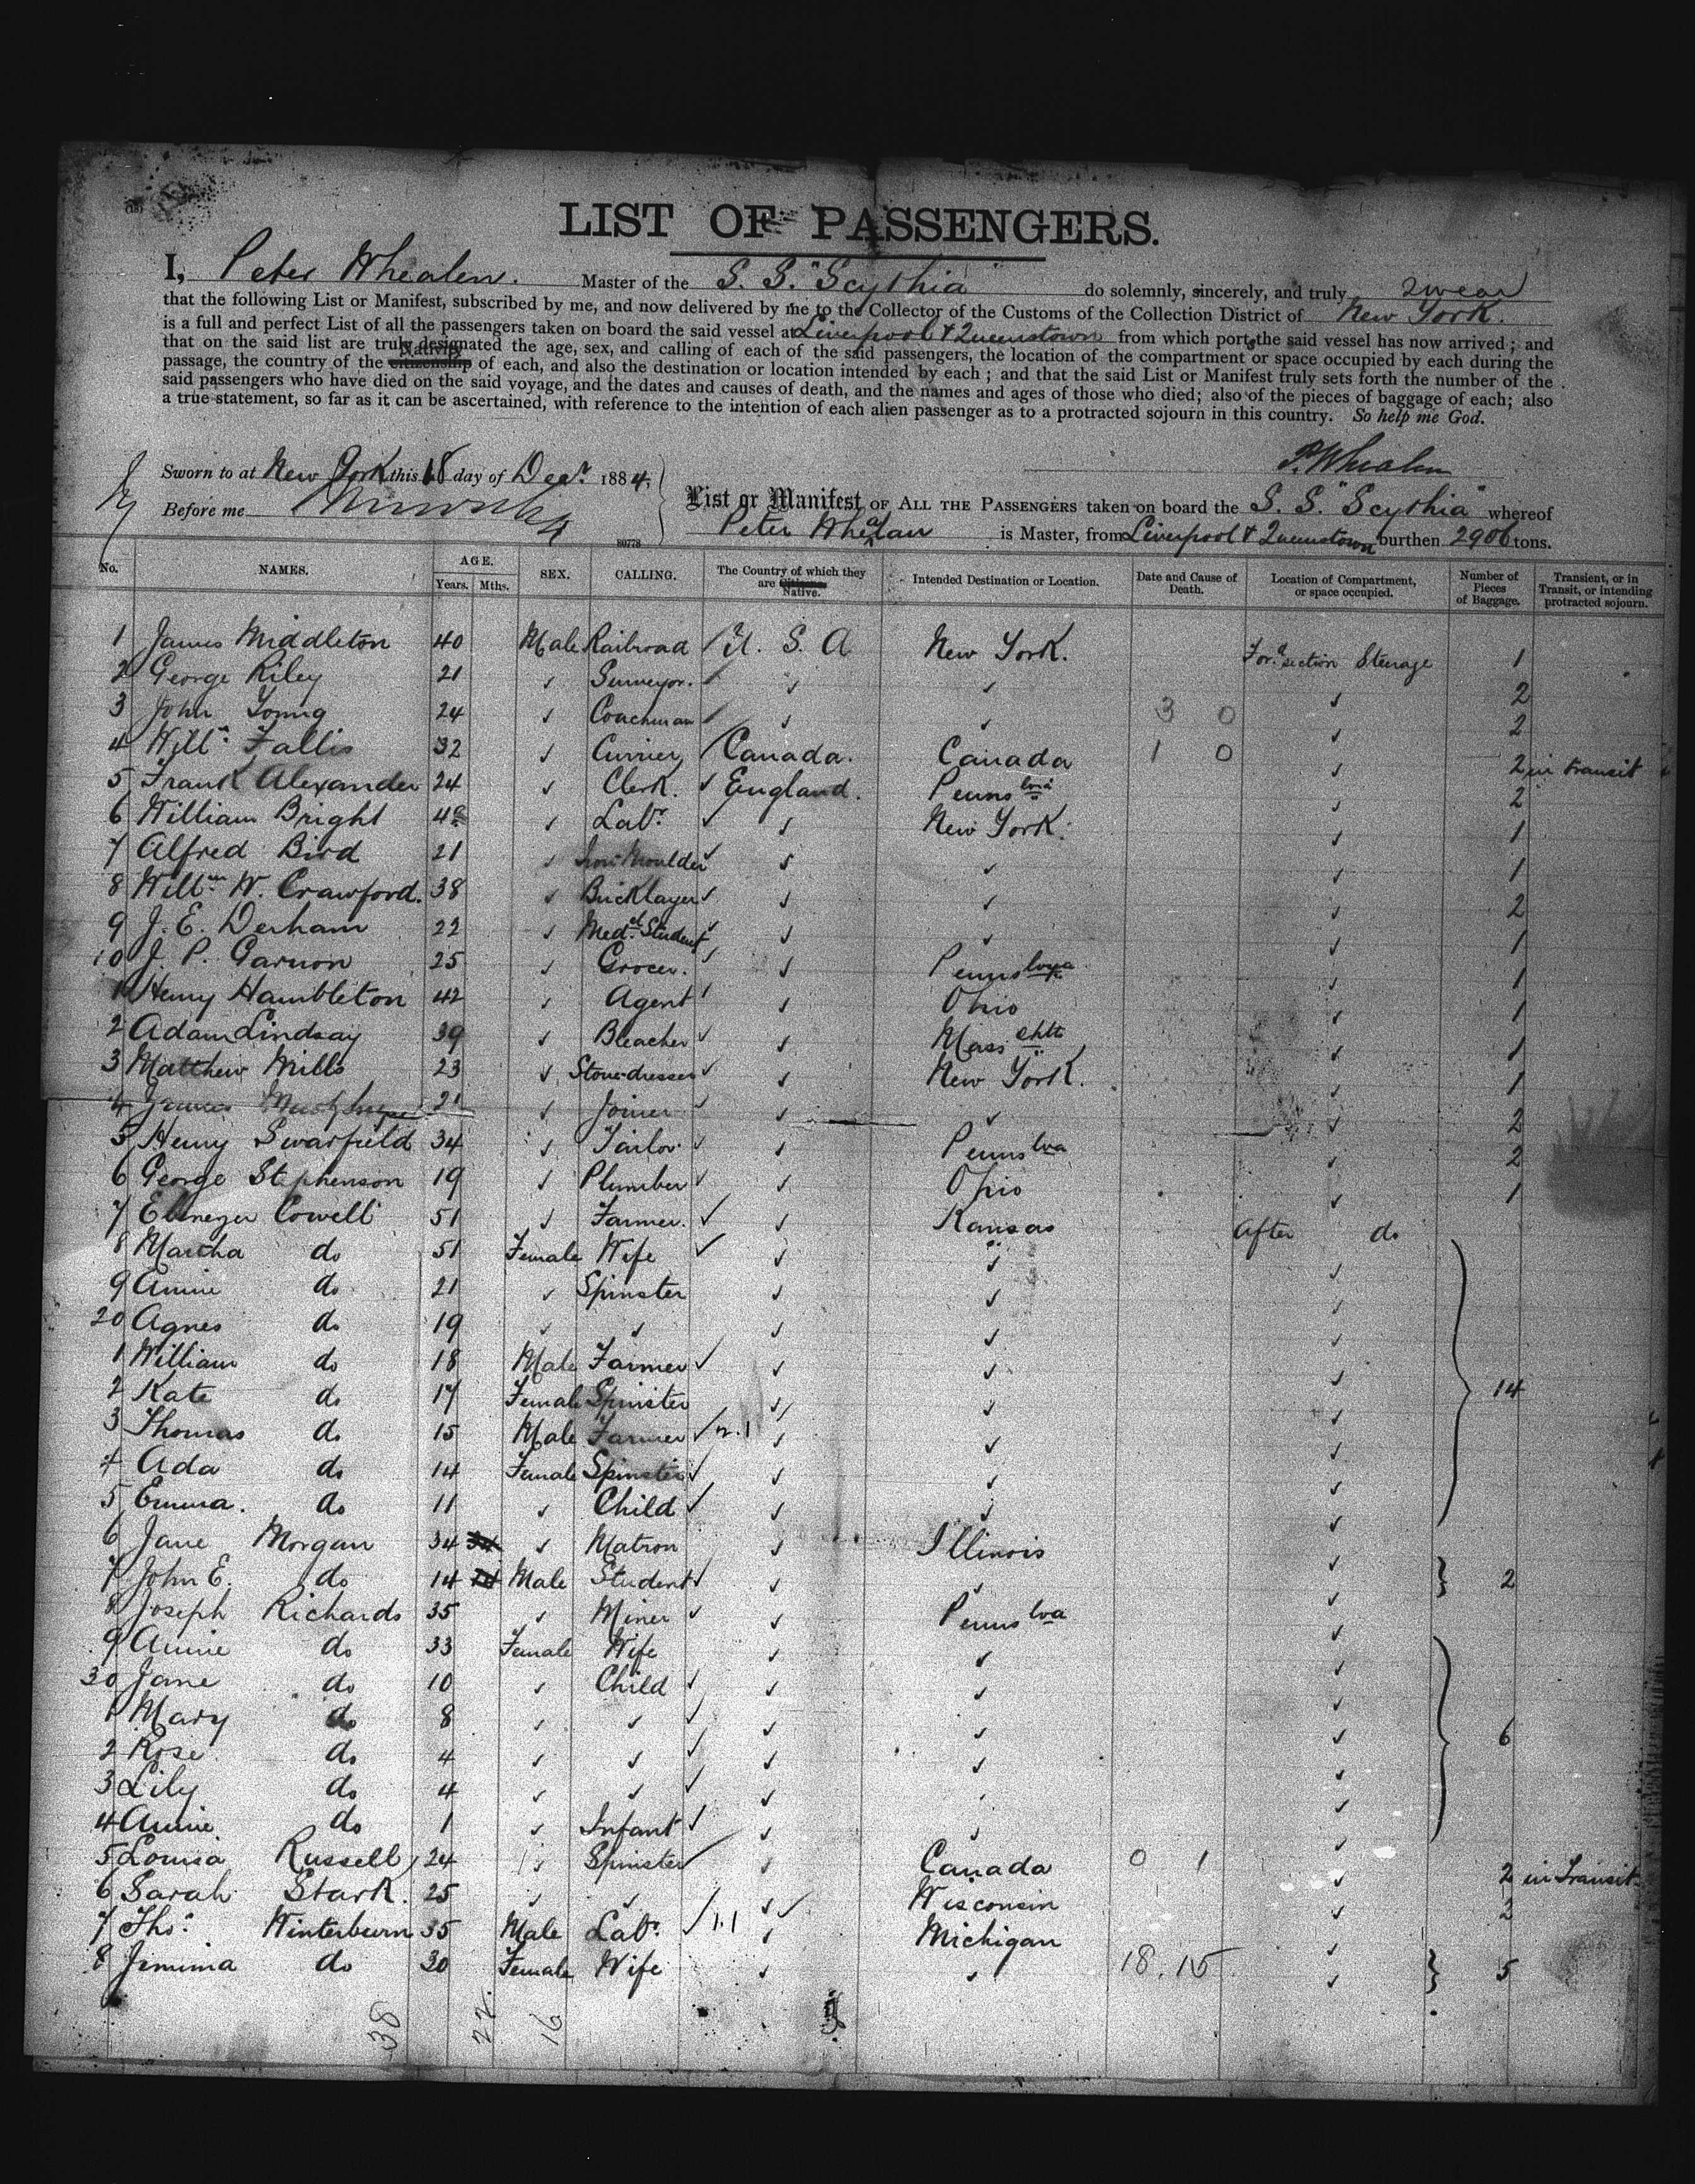 LIST OF PASSENGERS.
I, Peter Whealen. Master of the S. S. "Scythia" do solemnly, sincerely, and truly swear
that the following List or Manifest, subscribed by me, and now delivered by me to the Collector of the Customs of the Collection District of New York.
is a full and perfect List of all the passengers taken on board the said vessel at Liverpool & Queenstown from which ports the said vessel has now arrived; and
that on the said list are truly designated the age, sex, and calling of each of the said passengers, the location of the compartment or space occupied by each during the
passage, the country of the citizenship Nativity of each, and also the destination or location intended by each; and that the said List or Manifest truly sets forth the number of the
said passengers who have died on the said voyage, and the dates and causes of death, and the names and ages of those who died; also of the pieces of baggage of each; also
a true statement, so far as it can be ascertained, with reference to the intention of each alien passenger as to a protracted sojourn in this country. So help me God.
P. Whealen
Sworn to at New York this 18 day of Decr. 1884,
Before me
List or Manifest OF ALL THE PASSENGERS taken on board the S. S. "Scythia" whereof
Peter Whealan is Master, from Liverpool & Queenstown burthen 2906 tons.
80778
No. NAMES. AGE. Years. Mths. SEX. CALLING. The Country of which they are Citizens Native. Intended Destination or Location. Date and Cause of Death. Location of Compartment, or space occupied. Number of Pieces of Baggage. Transient, or in Transit, or intending protracted sojourn.
1 James Middleton 40 Male Railroad U. S. A New York. For'd section Steerage 1
2 George Riley 21 Surveyor. 2
3 John Young 24 Coachman 3 0 2
4 Willm. Fallis 32 Currier Canada. Canada 1 0 2 in transit
5 Frank Alexander 24 Clerk. England. Pennslvia 2
6 William Bright 48 Labr. New York. 1
7 Alfred Bird 21 Iron Moulder 1
8 Willm. W. Crawford. 38 Bricklayer 2
9 J. E. Derham 22 Medcl. Student 1
10 J. P. Garnon 25 Grocer. Pennslva 1
1 Henry Hambleton 42 Agent Ohio 1
2 Adam Lindsay 39 Bleacher Masschtts 1
3 Matthew Mills 23 Stone-dresser New York. 1
4 James 21 Joiner 2
5 Henry Swarfield 34 Tailor Pennslva 2
6 George Stephenson 19 Plumber Ohio 1
7 Ebenezer Cowell 51 Farmer. Kansas After do
8 Martha do 51 Female Wife
9 Annie do 21 Spinster
20 Agnes do 19
1 William do 18 Male Farmer
2 Kate do 17 Female Spinster 14
3 Thomas do 15 Male Farmer
4 Ada do 14 Female Spinster
5 Emma. do 11 Child
6 Jane Morgan 34 34 Matron Illinois
7 John E. do 14 14 Male Student 2
8 Joseph Richards 35 Miner Pennslva
9 Annie do 33 Female Wife
30 Jane do 10 Child
1 Mary do 8
2 Rose do 4 6
3 Lily do 4
4 Annie do 1 Infant
5 Louisa Russell 24 Spinster Canada 0 1 2 in Transit
6 Sarah Stark. 25 Wisconsin 2
7 Thos. Winterburn 35 Male Labr. 1.1 Michigan
8 Jemima do 30 Female Wife 18.15 5
38 22 16